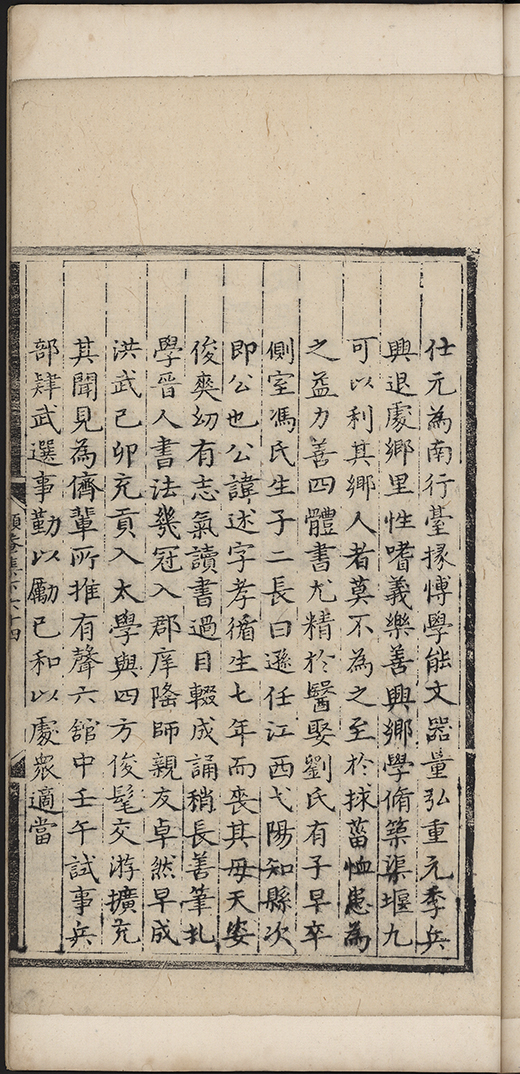 仕元為南行臺掾愽學能文器量弘重元季兵
興退處鄉里性嗜義樂善興鄉學脩築渠堰九
可以利其鄉人者莫不為之至於捄菑恤患為
之益力善四體書尤精於醫娶劉氏有子早卒
側室馮氏生子二長曰遜任江西弋陽知縣次
即公也公諱述字孝循生七年而喪其母天姿
俊爽幼有志氣讀書過目輟成誦稍長善筆札
學晉人書法㡬冠入郡庠隆師親友卓然早成
洪武己卯充貢入太學與四方俊髦交游擴充
其聞見為儕輩所推有聲六舘中壬午試事兵
部肄武選事勤以勵己和以處衆適當
頥菴集下六十四